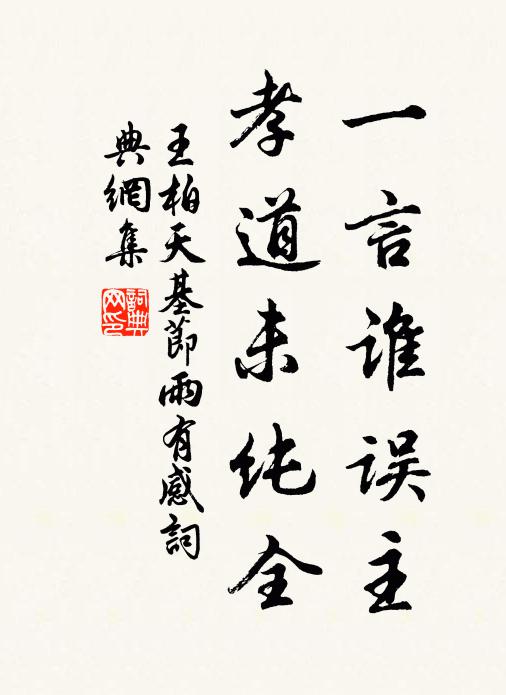 一言谁误主
孝道未纯全
王柏天基節雨有感詞
典網集
詞典網印